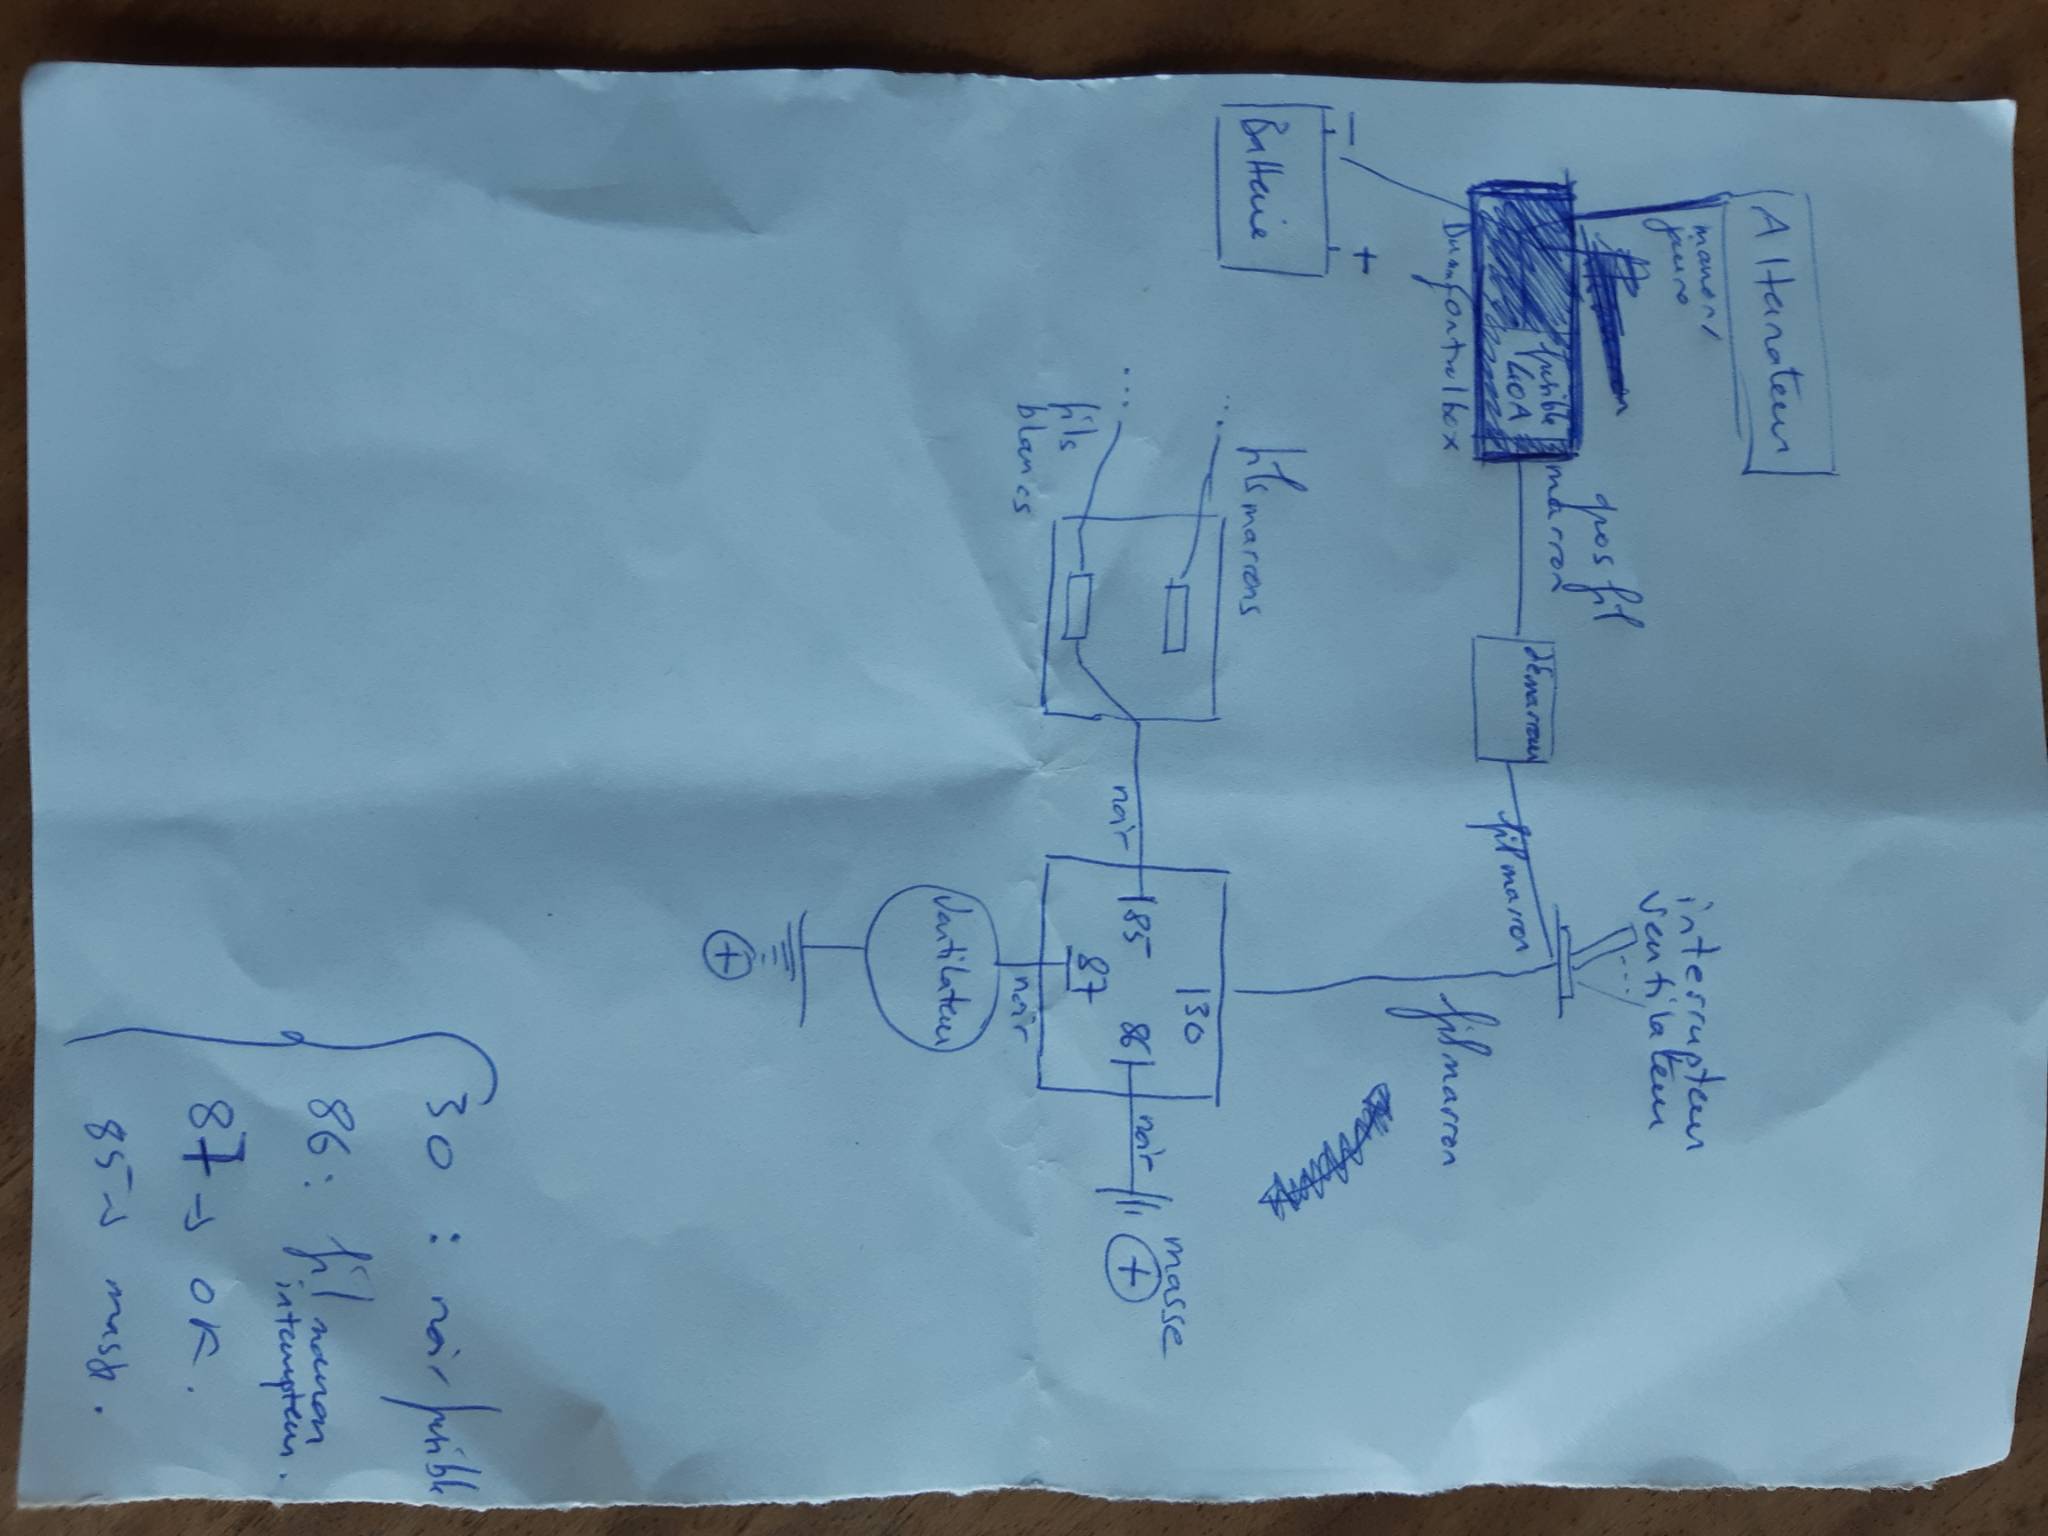 Alternateur
marron/
jaune
-
+
Batterie
fusible
40A
gros fil
marron
démarreur
fil marron
interrupteur
ventilateur
fil marron
...
fils marrons
...
fils
blancs
noir
85
130
87
86
noir
masse
+
noir
Ventilateur
+
30 : noir fusible
86 : fil marron
interrupteur.
87 → OK.
85 → masse.